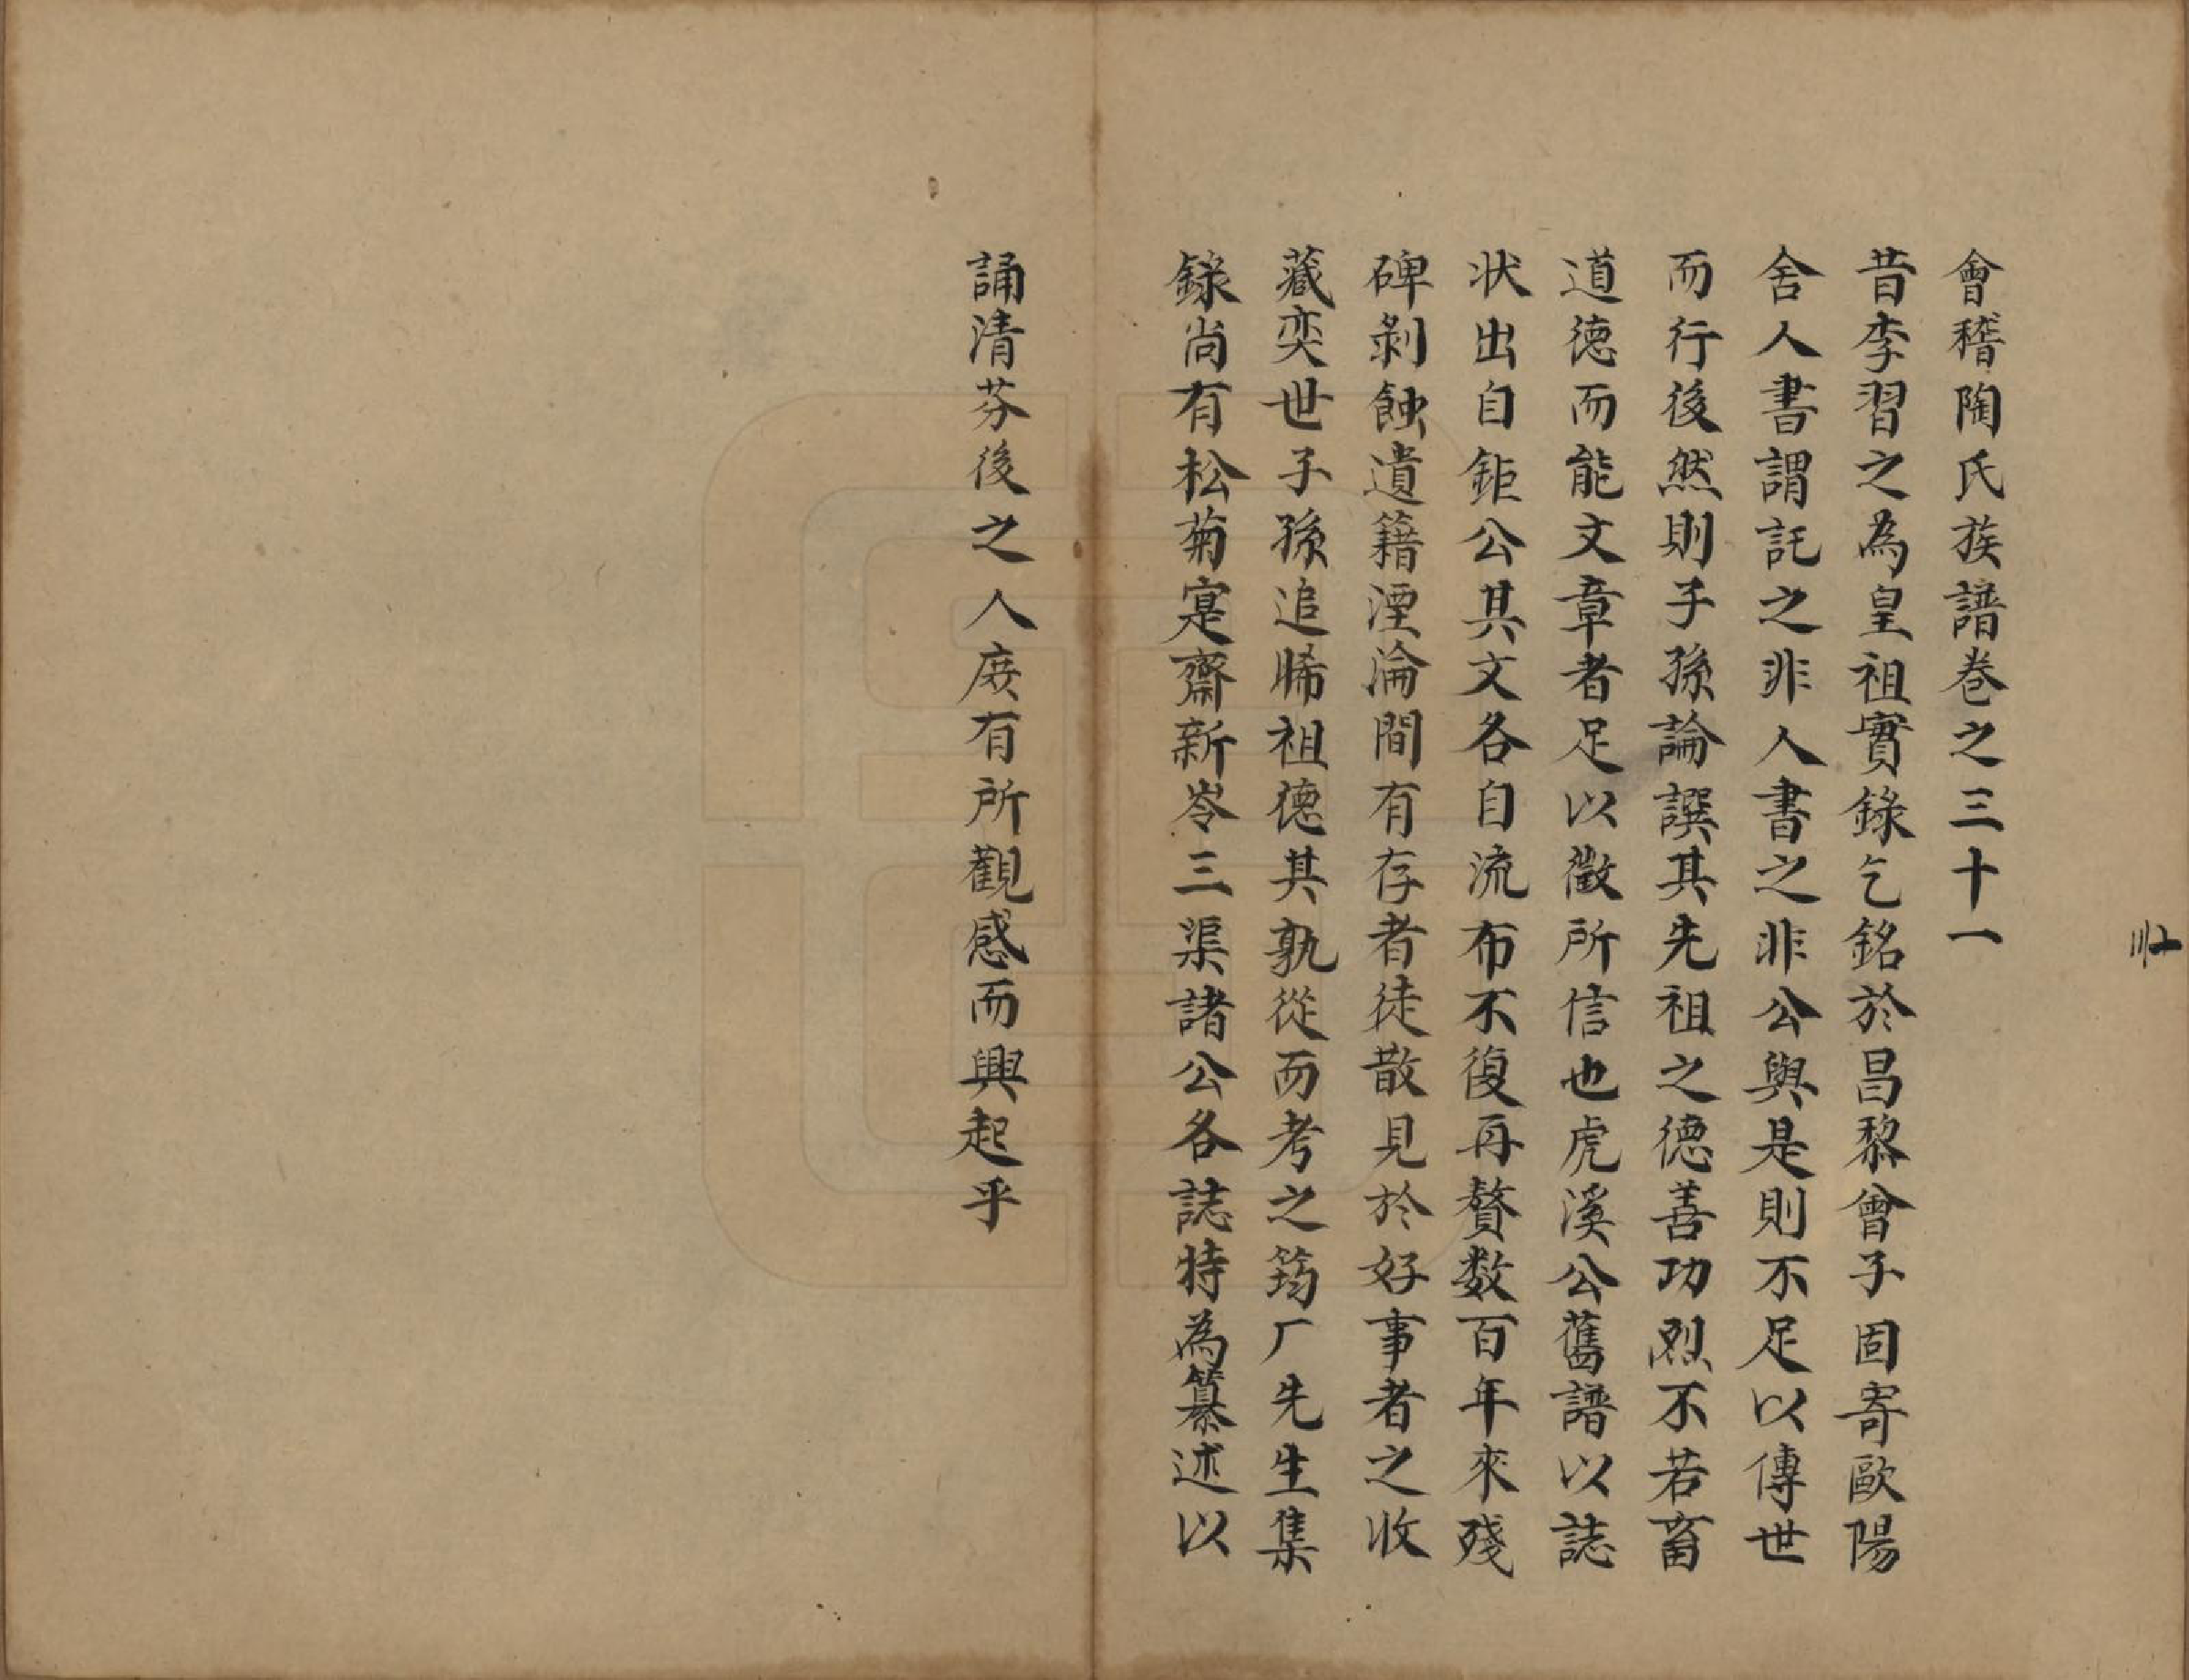 會稽陶氏族譜卷之三十一
昔李習之為皇祖實錄乞銘於昌黎曾子固寄歐陽
舍人書謂託之非人書之非公與是則不足以傳世
而行後然則子孫論譔其先祖之德善功烈不若畜
道德而能文章者足以徵所信也虎溪公舊譜以誌
狀出自鉅公其文各自流布不復再贅数百年來殘
碑剝蝕遺籍湮淪間有存者徒散見於好事者之收
藏奕世子孫追睎祖德其孰從而考之筠厂先生集
錄尚有松菊寔齋新岺三渠諸公各誌特為纂述以
誦清芬後之人庶有所觀感而興起乎